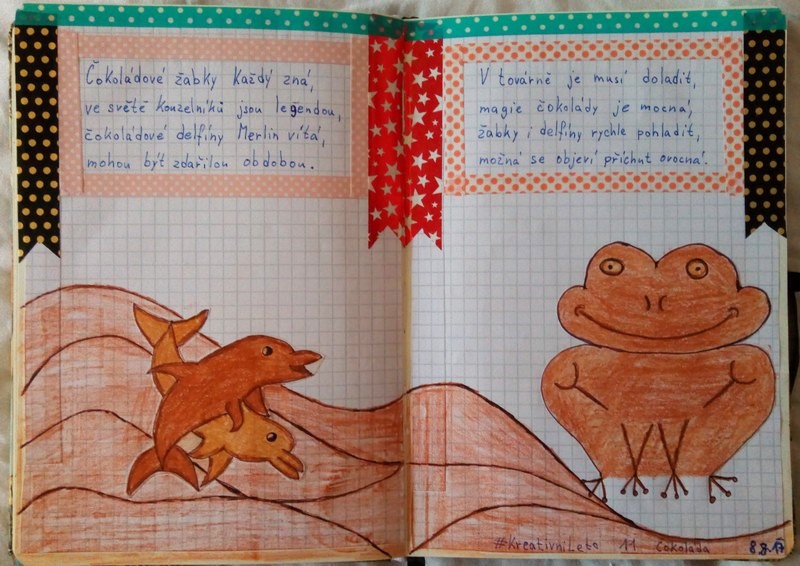 Čokoládové žabky každý zná,
ve světě kouzelníků jsou legendou,
čokoládové delfíny Merlin vítá,
mohou být zdařilou obdobou.
V továrně je musí doladit,
magie čokolády je mocná,
žabky i delfíny rychle pohladit,
možná se objeví příchuť ovocná.
#KreativníLeto 11 čokoláda 8.8.17